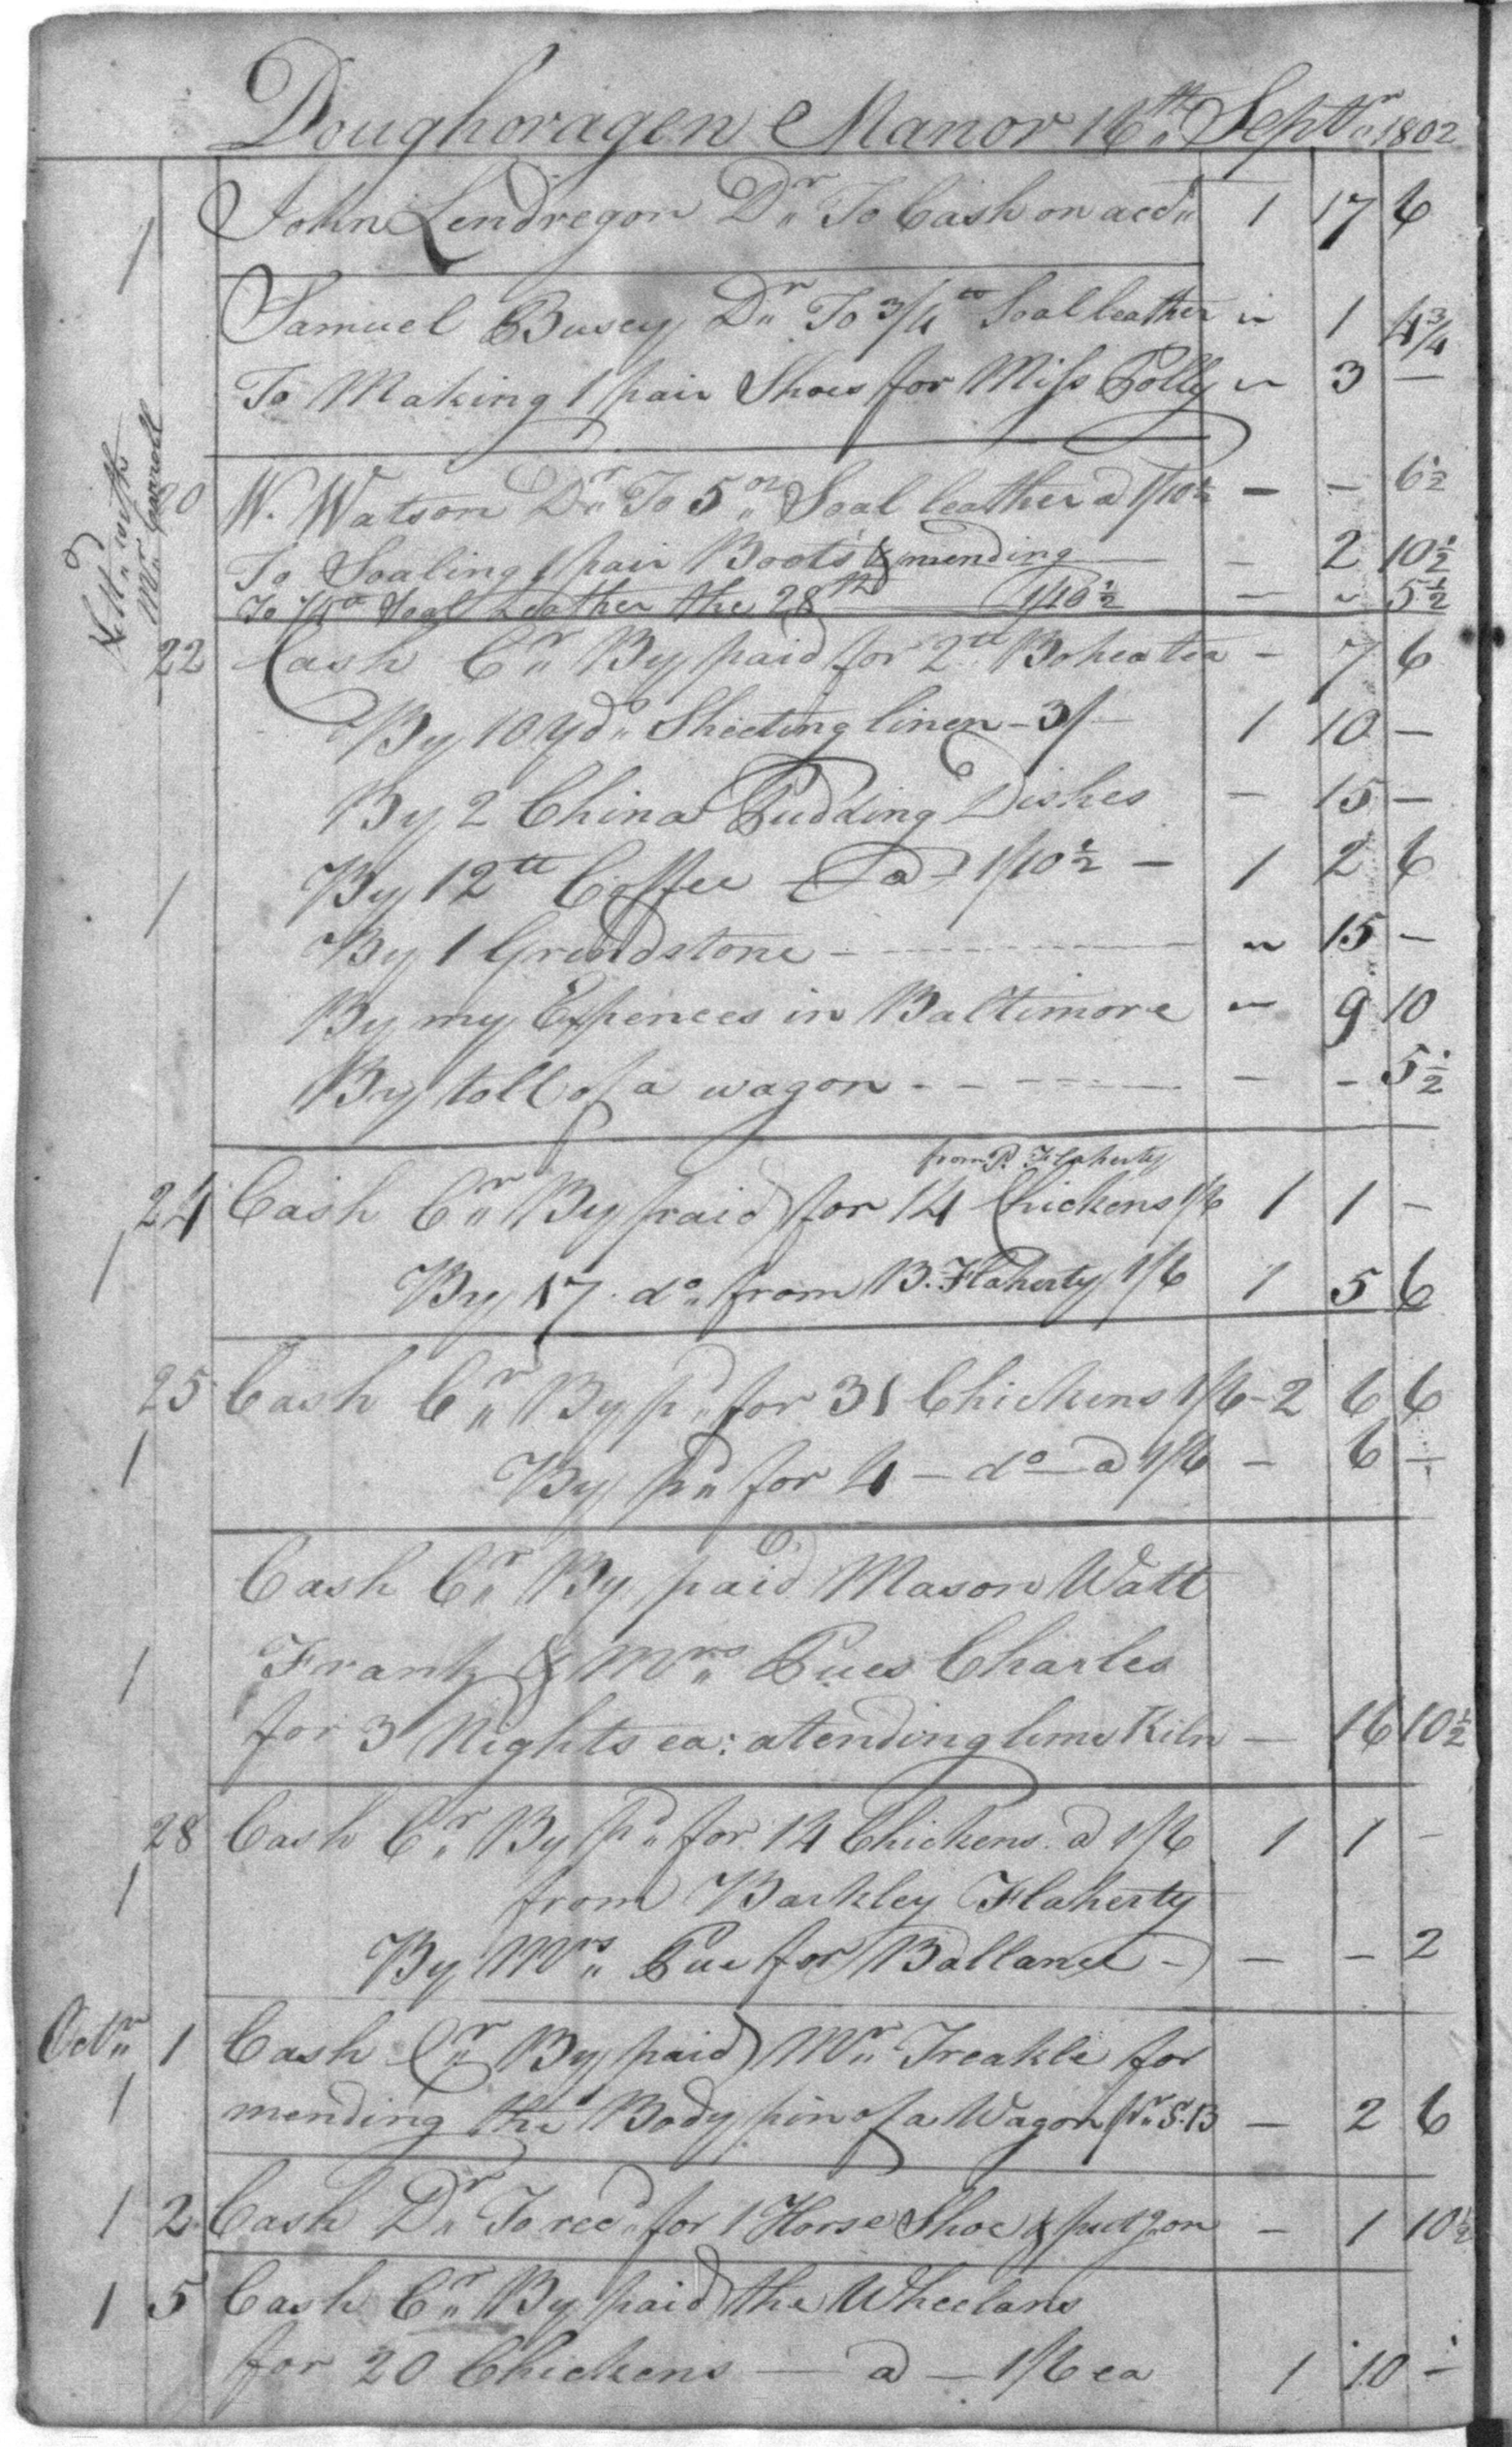 Doughoragen Manor 16th Septr 1802
1 John Lendregon Dr To Cash on accd 1 17 6
Samuel Busey Dr To 3/4 tt Soal leather " 1 4 3/4
To Making 1 pair Shoes for Miss Polly " 3 —
Settd with
Mr Carroll
20 W. Watson Dr To 5 oz Soal leather a 1/10½ — — 6½
To Soaling 1 pair Boots & mending — 2 10½
To 1/4 tt Soal Leather the 28th 1/10½ — " 5½
22 Cash Cr By paid for 2 tt Bohea tea — 7 6
By 10 yds Sheeting linen — 3/ — 1 10 —
By 2 China Pudding Dishes — 15 —
1 By 12 tt Coffee — a — 1/10½ — 1 2 6
By 1 Grindstone — " 15 —
By my Expences in Baltimore " 9 10
By toll of a wagon — — — 5½
from P. Flaherty
24 Cash Cr By paid for 14 Chickens 1/6 1 1 —
1 By 17 do from B. Flaherty 1/6 1 5 6
25 Cash Cr By pd for 31 Chickens 1/6 — 2 6 6
1 By pd for 4 — do — a 1/6 — 6 —
Cash Cr By paid Mason Watt
1 Frank & Mrs Pues Charles
for 3 Nights ea: atending lime Kiln — 16 10½
28 Cash Cr By pd for 14 Chickens a 1/6 1 1 —
1 from Barkley Flaherty
By Mrs Pue for Ballance — — — 2
Octr 1 Cash Cr By paid Mr Treakle for
1 mending the Body pin of a Wagon pr S.B — 2 6
1 2 Cash Dr To recd for 1 Horse Shoe & putg on — 1 10½
1 5 Cash Cr By paid the Wheelans
for 20 Chickens — a — 1/6 ea 1 10 —